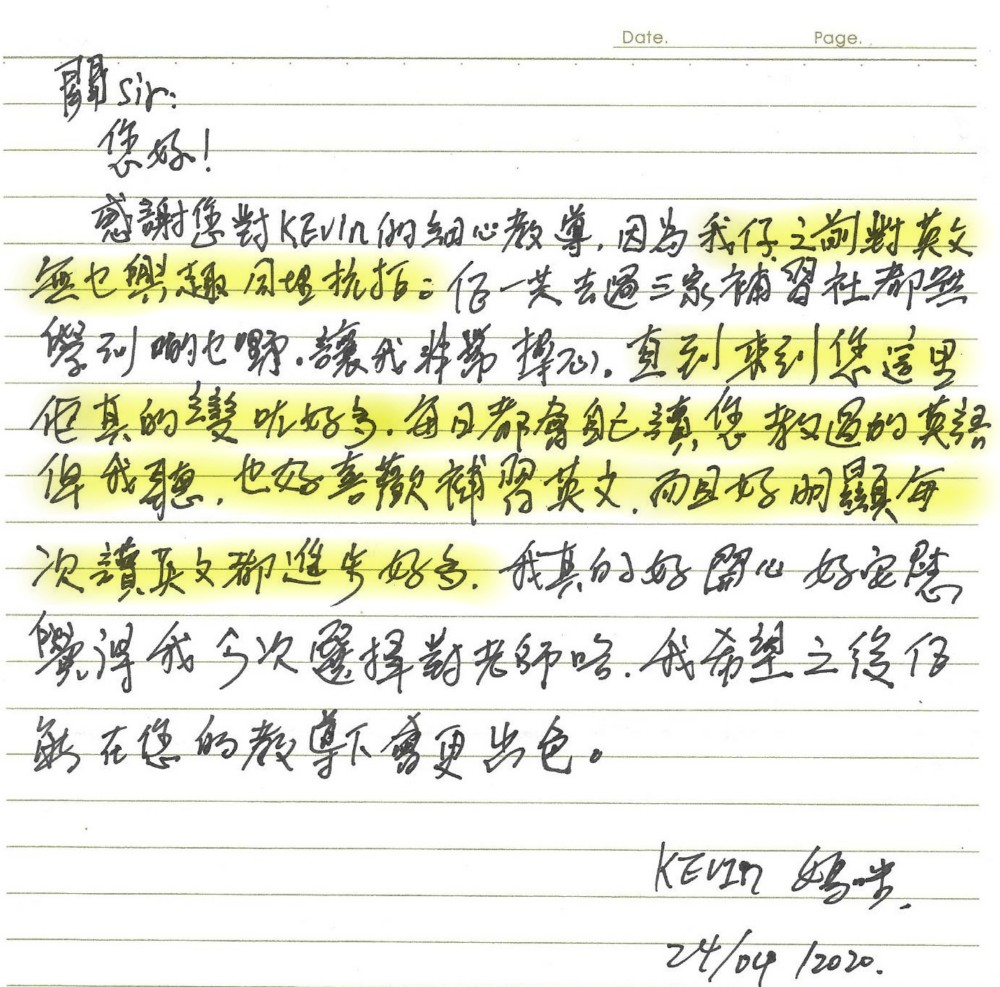 Date. Page.
關sir:
您好!
感謝您對KEVIn的細心教導,因為我仔之前對英文
無乜興趣同埋抗拒。佢一共去過三家補習社都無
學到啲乜嘢,讓我非常擔心,直到來到您這里
佢真的變咗好多,每日都會自己讀您教過的英語
俾我聽,也好喜歡補習英文,而且好明顯每
次讀英文都進步好多,我真的好開心好安慰
覺得我今次選擇對老師咯,我希望之後仔
能在您的教導下會更出色。
KEVIn 媽咪.
24/04/2020.